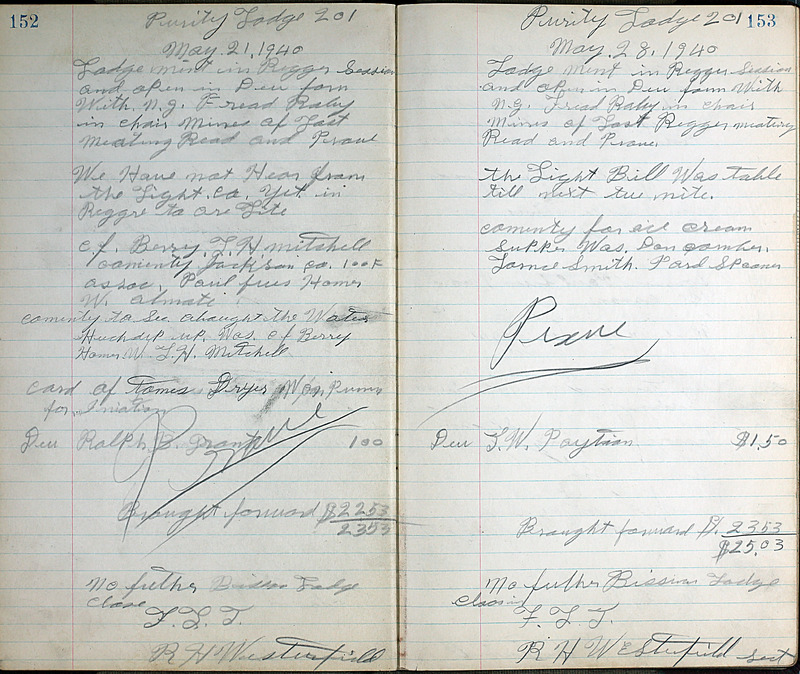 152
Purity Lodge 201
May. 21, 1940
Lodge mint in Regger Session
and open in Deu form
With. N.G. Fread Raby
in chair Mines of Last
meating Read and Prove
We Have not Hear from
the Light. Co. Yet in
Reggre to are Lite
C.f. Berry, L H Mitchell
comenty Jackson co. 100F
assoc, Paul
W.
comenty to See abaught the Water
Huch up. Was. C f Berry
Homer W. L. H. Mitchell
card of James Dryer Was
for
Prove
Deu Ralph B. Grant 100
Brought forward $2253
2353
no futher Lodge
close
F. L. T.
R H Westerfield
153
Purity Lodge 201
May. 28, 1940
Lodge mint in Regger Session
and open in Deu form With
N.G. Fread Raby in chair
Mines of Last Regger meating
Read and Prove,
the Light Bill Was table
till next tue nite.
comenty for ice cream
Supper Was.
Smith.
Prove
Deu L.W. $1.50
Brought forward $. 2353
$25,03
No futher Bission Lodge
closing
F. L. T.
R H Westerfield sect